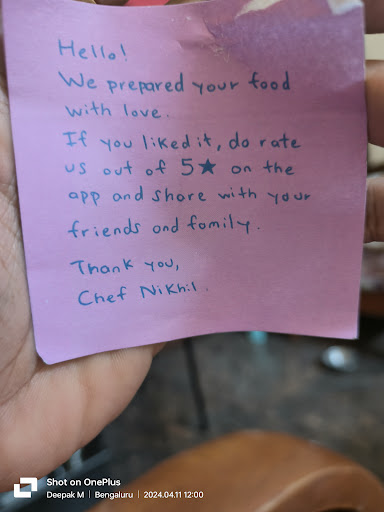 Hello!
We prepared your food
with love.
If you liked it, do rate
us out of 5★ on the
app and share with your
friends and family.
Thank you,
Chef Nikhil.
Shot on OnePlus
Deepak M | Bengaluru | 2024.04.11 12:00